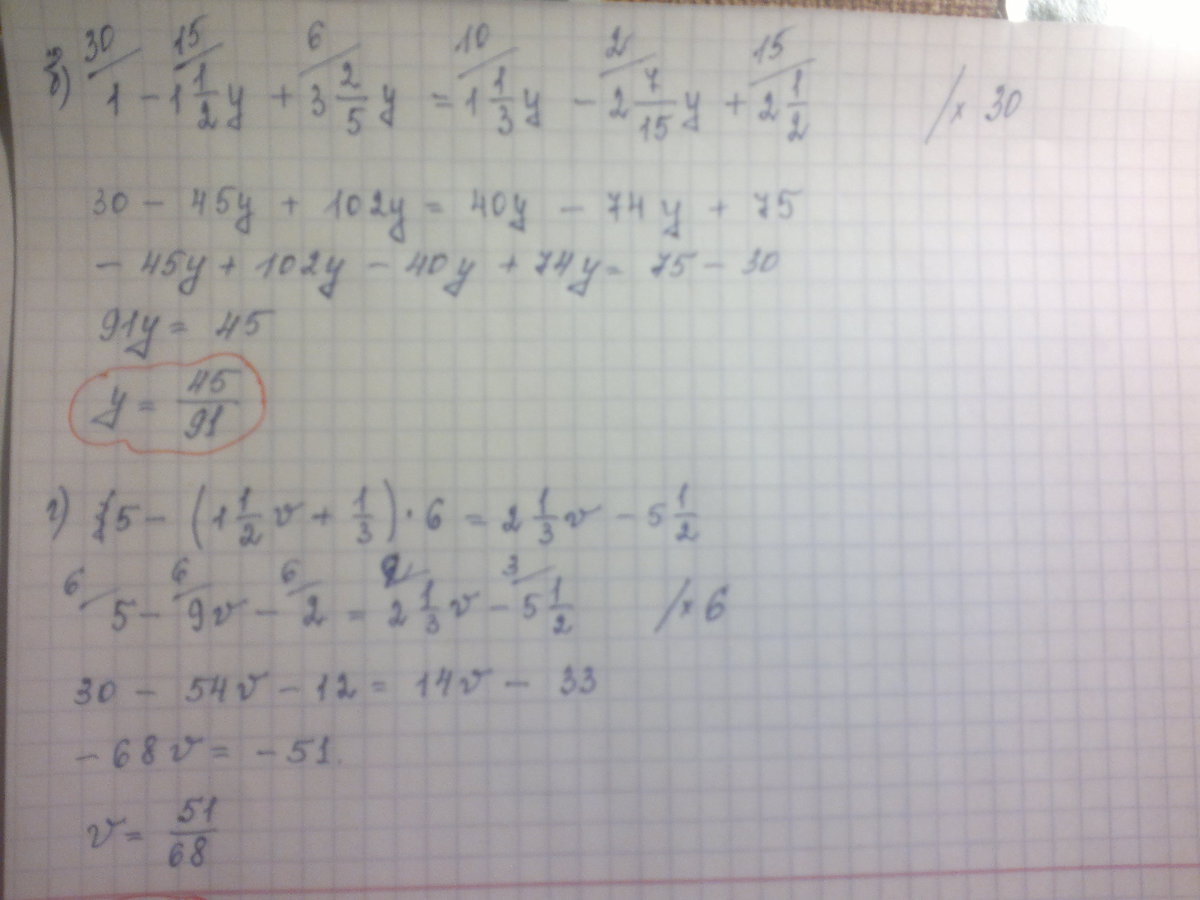 б) 30/ 1 - 15/ 1 1/2 y + 6/ 3 2/5 y = 10/ 1 1/3 y - 2/ 2 7/15 y + 15/ 2 1/2 /× 30
30 - 45y + 102y = 40y - 74y + 75
- 45y + 102y - 40y + 74y = 75 - 30
91y = 45
y = 45/91
г) 5 - (1 1/2 v + 1/3) · 6 = 2 1/3 v - 5 1/2
6/ 5 - 6/ 9v - 6/ 2 = 2/ 2 1/3 v - 3/ 5 1/2 /× 6
30 - 54v - 12 = 14v - 33
- 68v = - 51.
v = 51/68